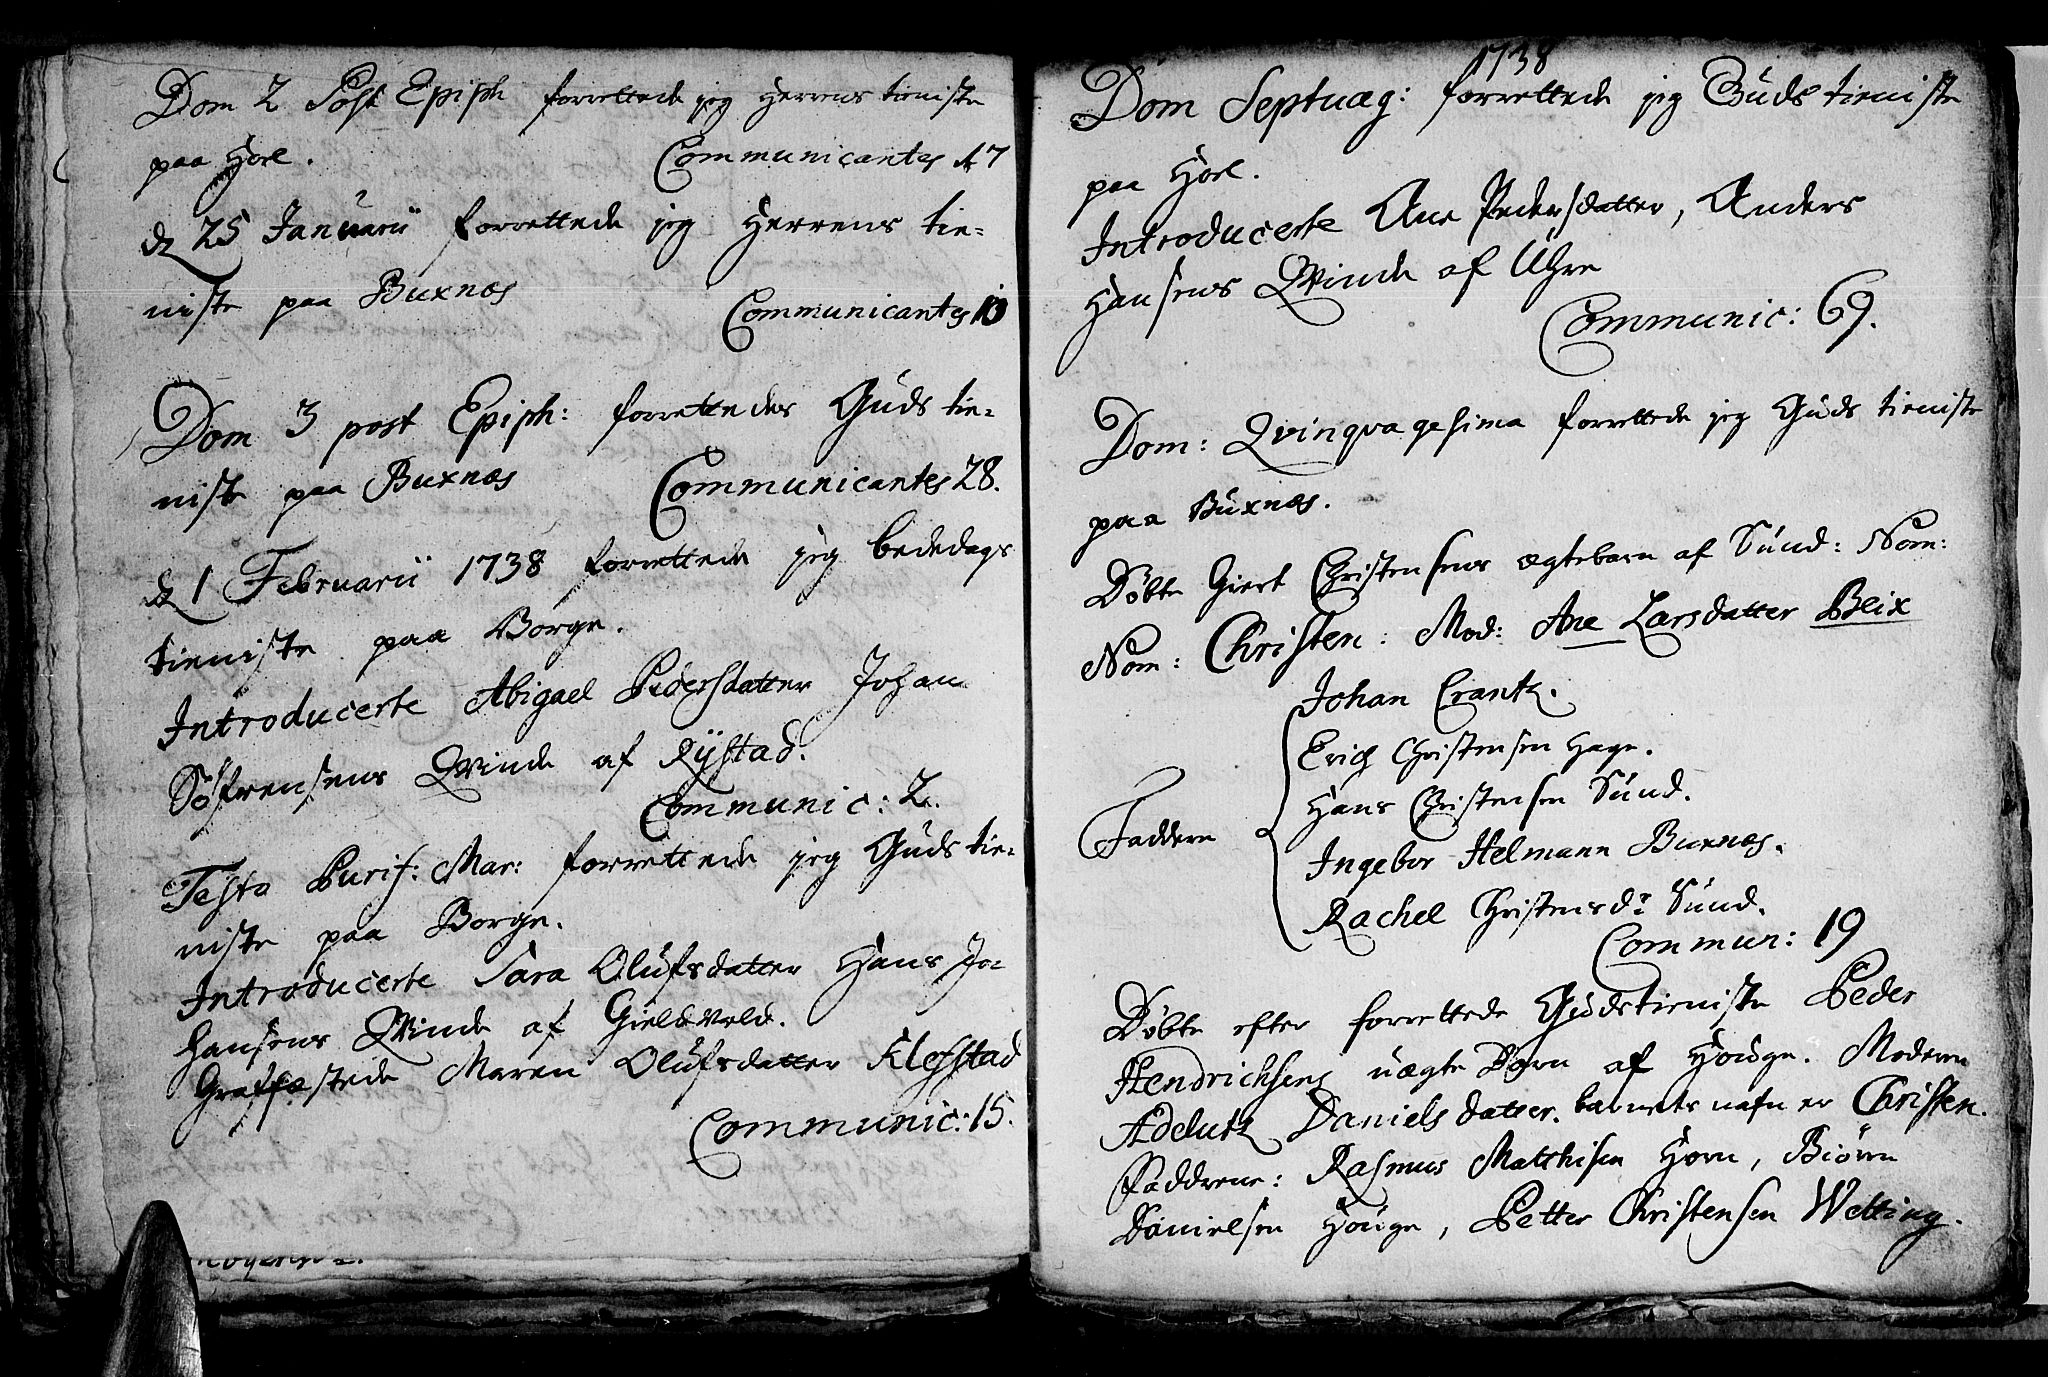 Dom 2 Post Epiph forrettede jeg Herrens tieniste
paa Hoel. Communicantes 17
d 25 Januarii forrettede jeg Herrens tie-
niste paa Buxnæs
Communicantes 10
Dom 3 post Epiph: forrettedes Guds tie-
niste paa Buxnæs Communicantes 28.
d 1 Februarii 1738 forrettede jeg bededags
tieniste paa Borge.
Introducerte Abigael Pedersdatter Johan
Söfrensens Qvinde af Rystad.
Communic: 2.
Festo Purif: Mar: forrettede jeg Guds tie-
niste paa Borge.
Introducerte Sara Olufsdatter Hans Jo-
hansens Qvinde af Gieldvold.
Graffæstede Maren Olufsdatter Klefstad
Communic: 15.
1738
Dom Septuag: forrettede jeg Guds tieniste
paa Hoel.
Introducerte Ane Pedersdatter, Anders
Hansens Qvinde af Uhre
Communic: 69.
Dom: Qvinqvagesima forrettede jeg Guds tieniste
paa Buxnæs.
Döbte Giert Christensens ægtebarn af Sund: Nom:
Nom: Christen: Mod: Ane Larsdatter Beix
Johan Crantz.
Erich Christensen Hage.
Faddere Hans Christensen Sund.
Ingebor Helmann Buxnæs.
Rachel Christensdr Sund.
Commun: 19
Döbte efter forrettede Gudstieniste Peder
Hendrichsens uægte Barn af Houge. Moderen
Adelutz Danielsdatter. barnets nafn er Christen.
Faddrene: Rasmus Matthisen Horn, Biörn
Danielsen Houge, Petter Christensen Wetting.